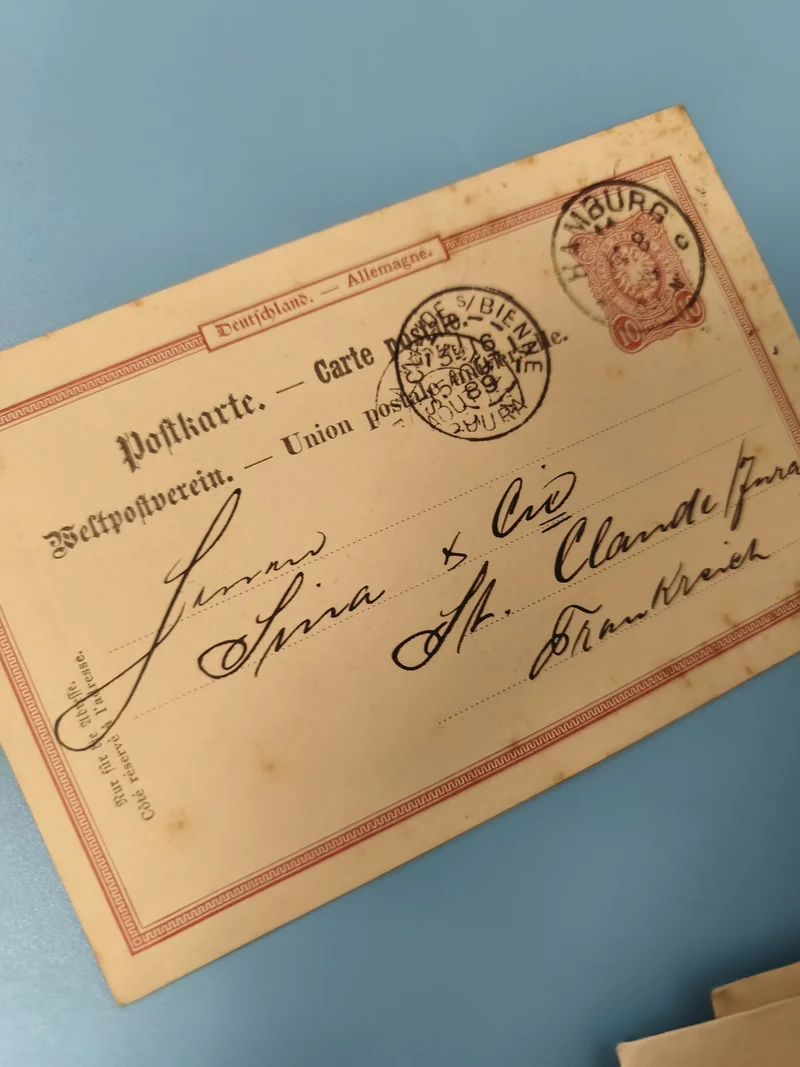 Deutschland. — Allemagne.
HAMBURG
10 10
Postkarte. — Carte postale.
Weltpostverein. — Union postale universelle.
CLAUDE S/BIENNE
89
JURA
Herren
Sina & Cie
St. Claude / Jura
Frankreich
Nur für die Adresse.
Côté réservé à l'adresse.